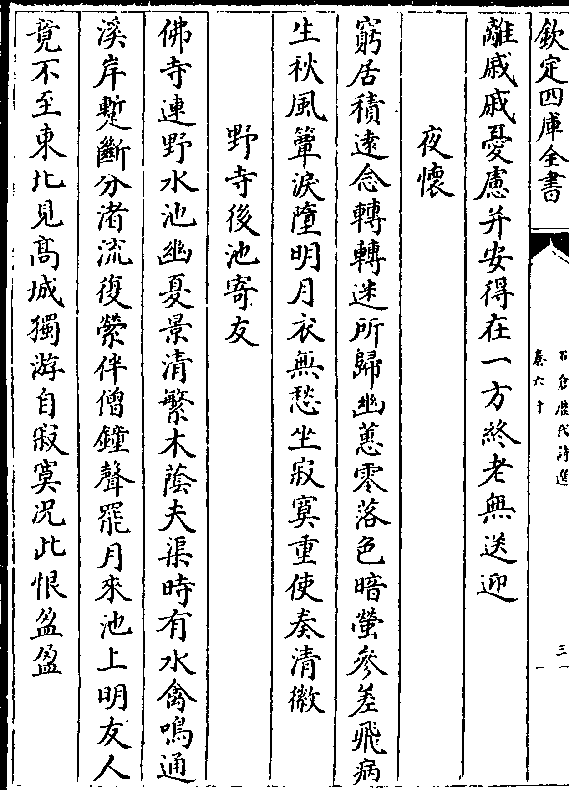 欽定四庫全書
石倉歷代詩選
卷六十
離戚戚憂慮并安得在一方終老無送迎
夜懷
窮居積遠念轉轉迷所歸幽蕙零落色暗螢參差飛病
生秋風簟淚墮明月衣無愁坐寂寞重使奏清徽
野寺後池寄友
佛寺連野水池幽夏景清繁木蔭夫渠時有水禽鳴通
溪岸蹔斷分渚流復縈伴僧鐘聲罷月來池上明友人
竟不至東北見髙城獨游自寂寞况此恨盈盈